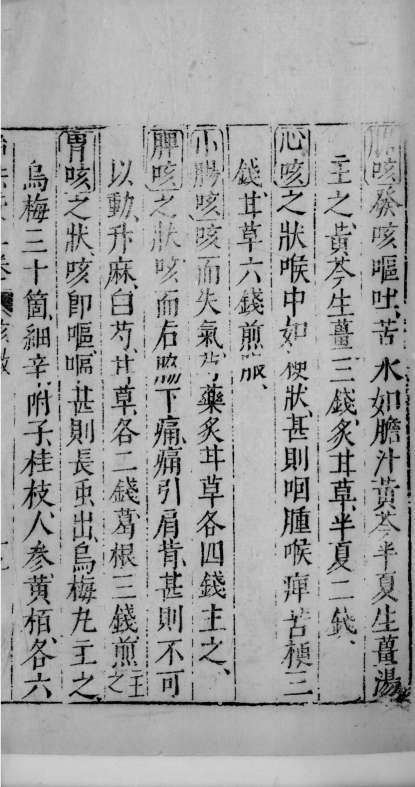 膽咳發咳嘔吐苦水如膽汁黃芩半夏生薑湯
主之黃芩生薑三錢炙甘草半夏二錢
心咳之狀喉中如梗狀甚則咽腫喉痺苦梗三
錢甘草六錢煎服
小腸咳咳而失氣芍藥炙甘草各四錢主之
脾咳之狀咳而右脇下痛痛引肩背甚則不可
以動升麻白芍甘草各二錢葛根三錢煎主之
胃咳之狀咳即嘔嘔甚則長虫出烏梅丸主之
烏梅三十箇細辛附子桂枝人參黃栢各六